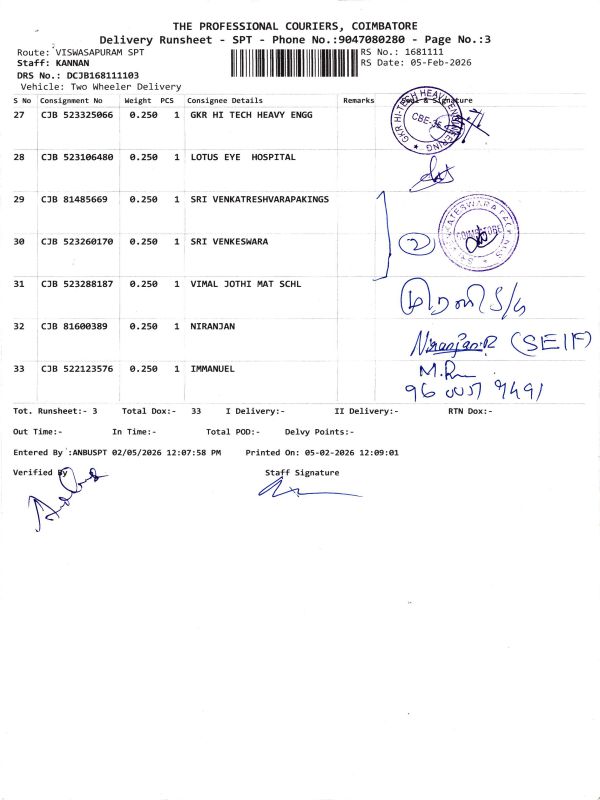 THE PROFESSIONAL COURIERS, COIMBATORE
Delivery Runsheet - SPT - Phone No.:9047080280 - Page No.:3
Route: VISWASAPURAM SPT RS No.: 1681111
Staff: KANNAN RS Date: 05-Feb-2026
DRS No.: DCJB168111103
Vehicle: Two Wheeler Delivery
S No Consignment No Weight PCS Consignee Details Remarks Seal & Signature
27 CJB 523325066 0.250 1 GKR HI TECH HEAVY ENGG
GKR HI-TECH HEAVY ENGINEERING
28 CJB 523106480 0.250 1 LOTUS EYE HOSPITAL
29 CJB 81485669 0.250 1 SRI VENKATRESHVARAPAKINGS
30 CJB 523260170 0.250 1 SRI VENKESWARA 2
31 CJB 523288187 0.250 1 VIMAL JOTHI MAT SCHL
32 CJB 81600389 0.250 1 NIRANJAN Niranjan.R (SELF)
33 CJB 522123576 0.250 1 IMMANUEL
Tot. Runsheet:- 3 Total Dox:- 33 I Delivery:- II Delivery:- RTN Dox:-
Out Time:- In Time:- Total POD:- Delvy Points:-
Entered By :ANBUSPT 02/05/2026 12:07:58 PM Printed On: 05-02-2026 12:09:01
Verified By Staff Signature